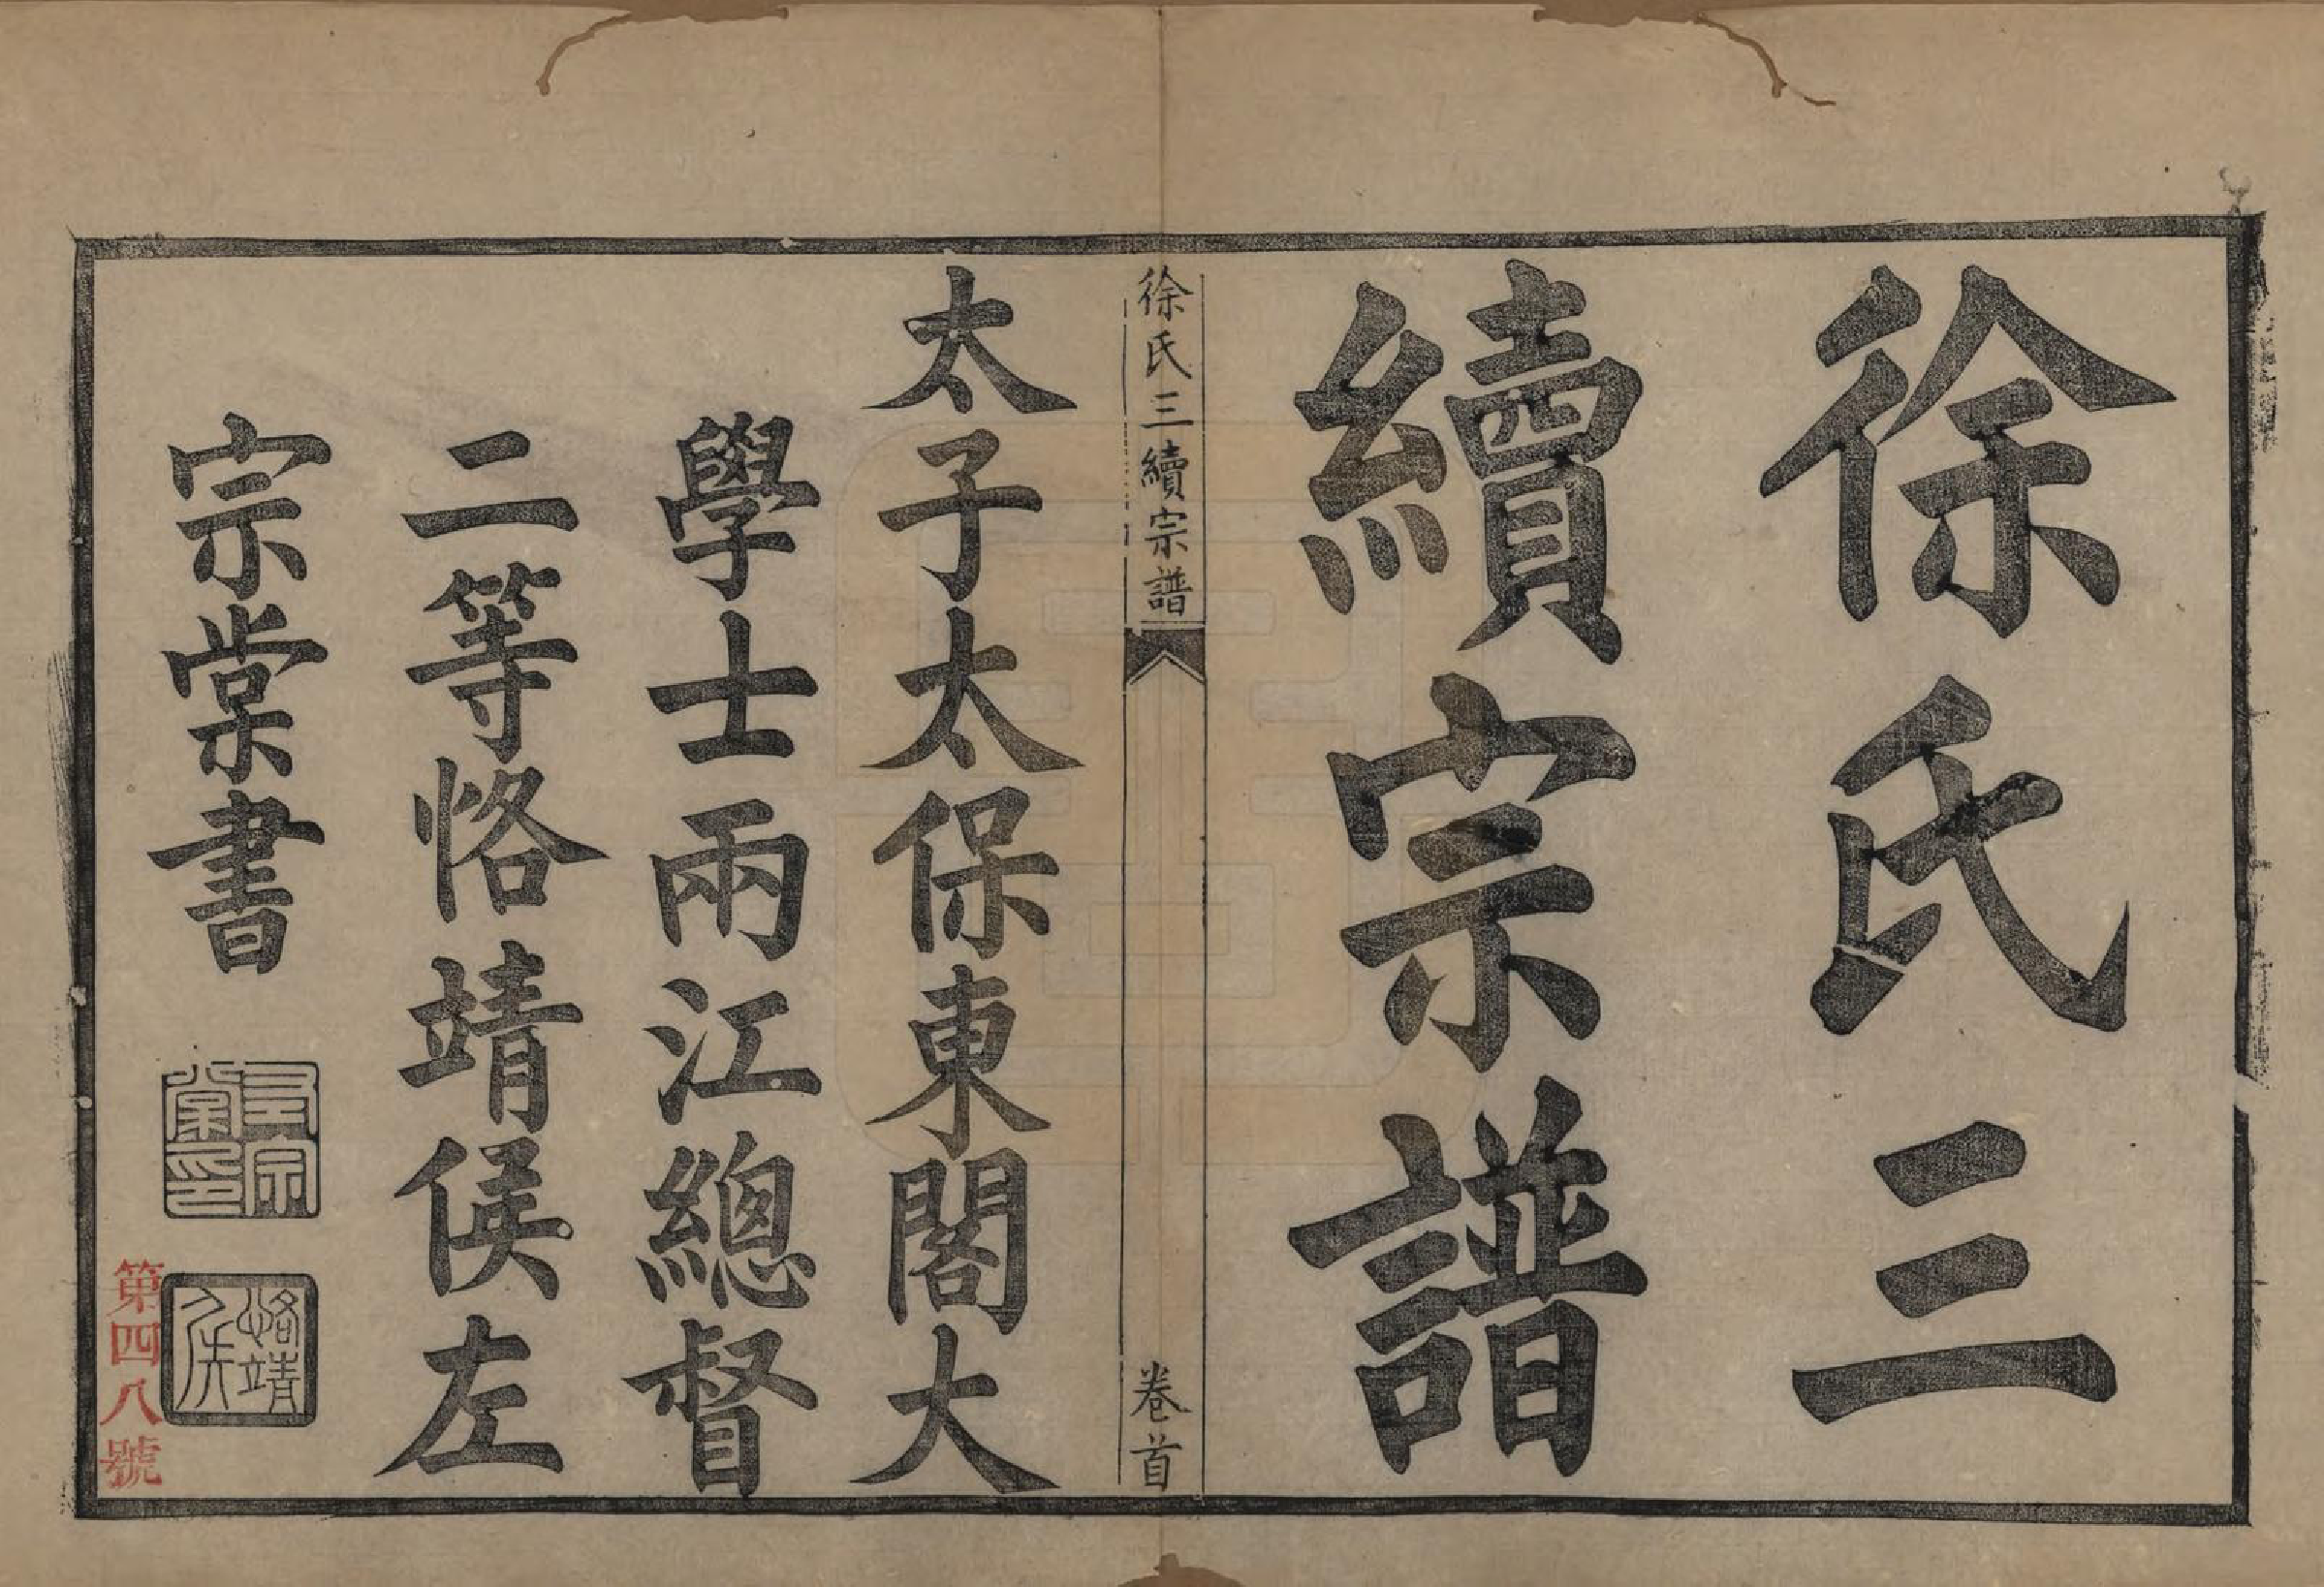 徐氏三
續宗譜
徐氏三續宗譜
卷首
太子太保東閣大
學士兩江總督
二等恪靖侯左
宗棠書
左宗
棠印
恪靖
侯
第四八號